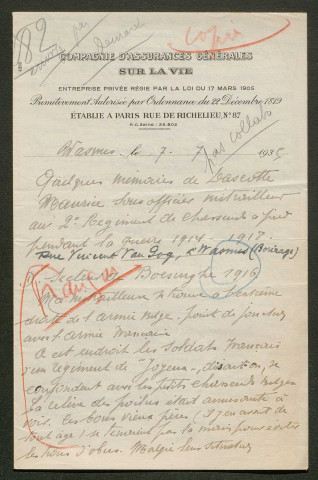 82
copié
COMPAGNIE D'ASSURANCES GÉNÉRALES
SUR LA VIE
ENTREPRISE PRIVÉE RÉGIE PAR LA LOI DU 17 MARS 1905
Primitivement Autorisée par Ordonnance du 22 Décembre 1819
ÉTABLIE A PARIS RUE DE RICHELIEU, N° 87
Wasmes, le 7 - 7 1935
par
Quelques mémoires de Lascotte
Maurice Sous officier mitrailleur
au 2e Regiment de chasseurs à pied
pendant la guerre 1914 - 1918
rue Vincent Van Gog, à Wasmes (Borinage)
Secteur de Boesinghe 1916
Ma mitrailleuse se trouve à l'extrême
droite de l'armée belge, point de jonction
avec l'armée française
A cet endroit les soldats français
d'un regiment de "Joyeux", disait-on, se
confondent avec les petits chasseurs belges
La relève des poilus était amusante à
voir. Les bons vieux pères (il y en avait de
tout âge) se tenaient par la main pour éviter
les trous d'obus. Malgré leur